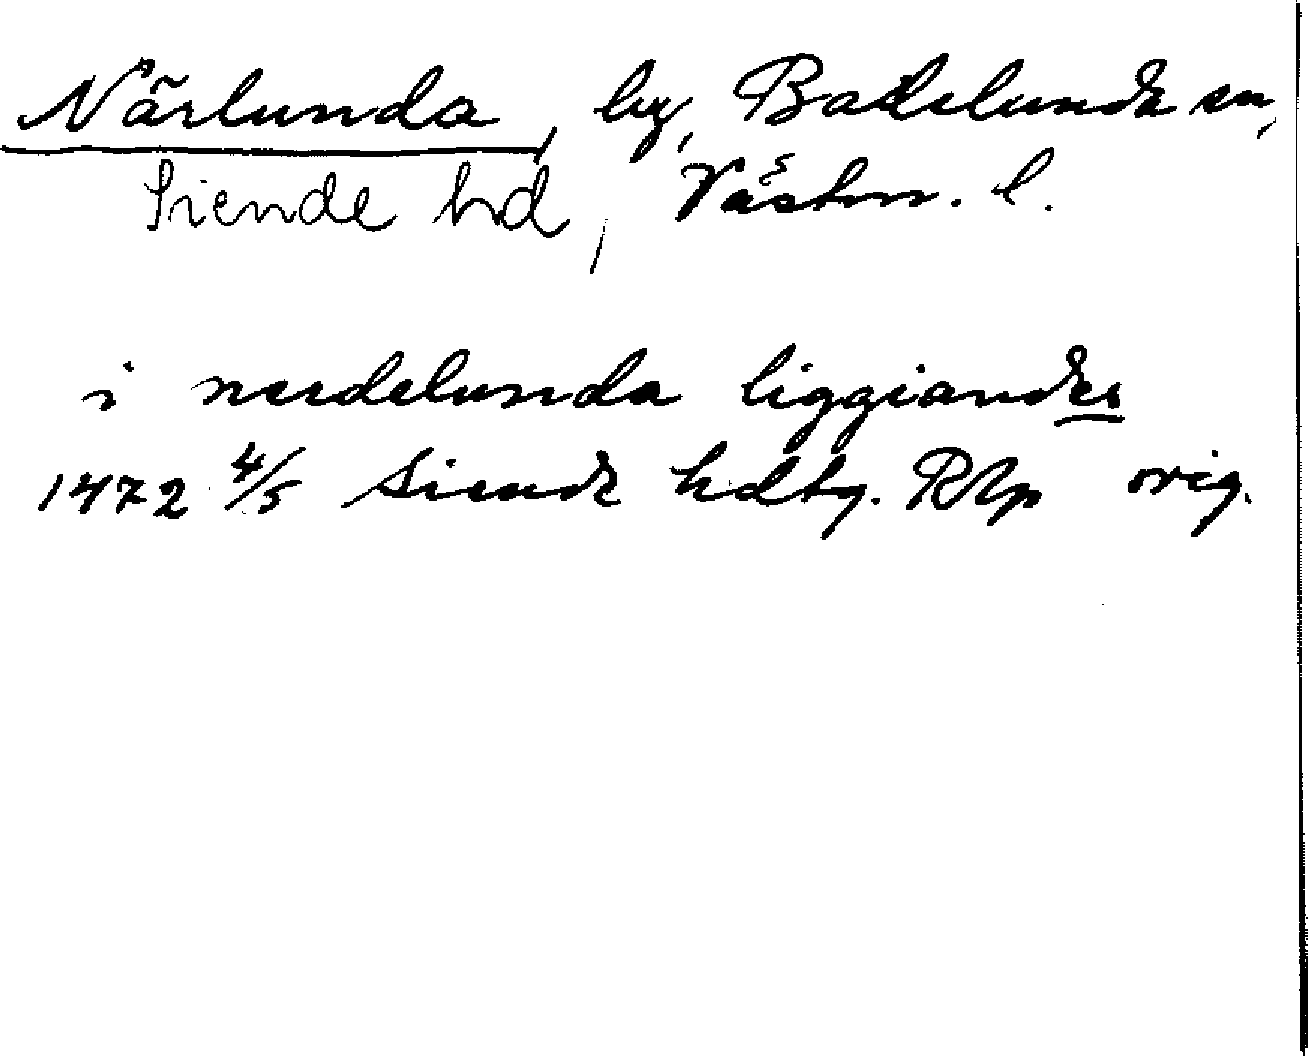 Närlunda, by, Badelunda sn,
Siende hd, Västm. l.
i nerdelunda liggiandes
1472 4/5 Siende hdtg. RAp orig.